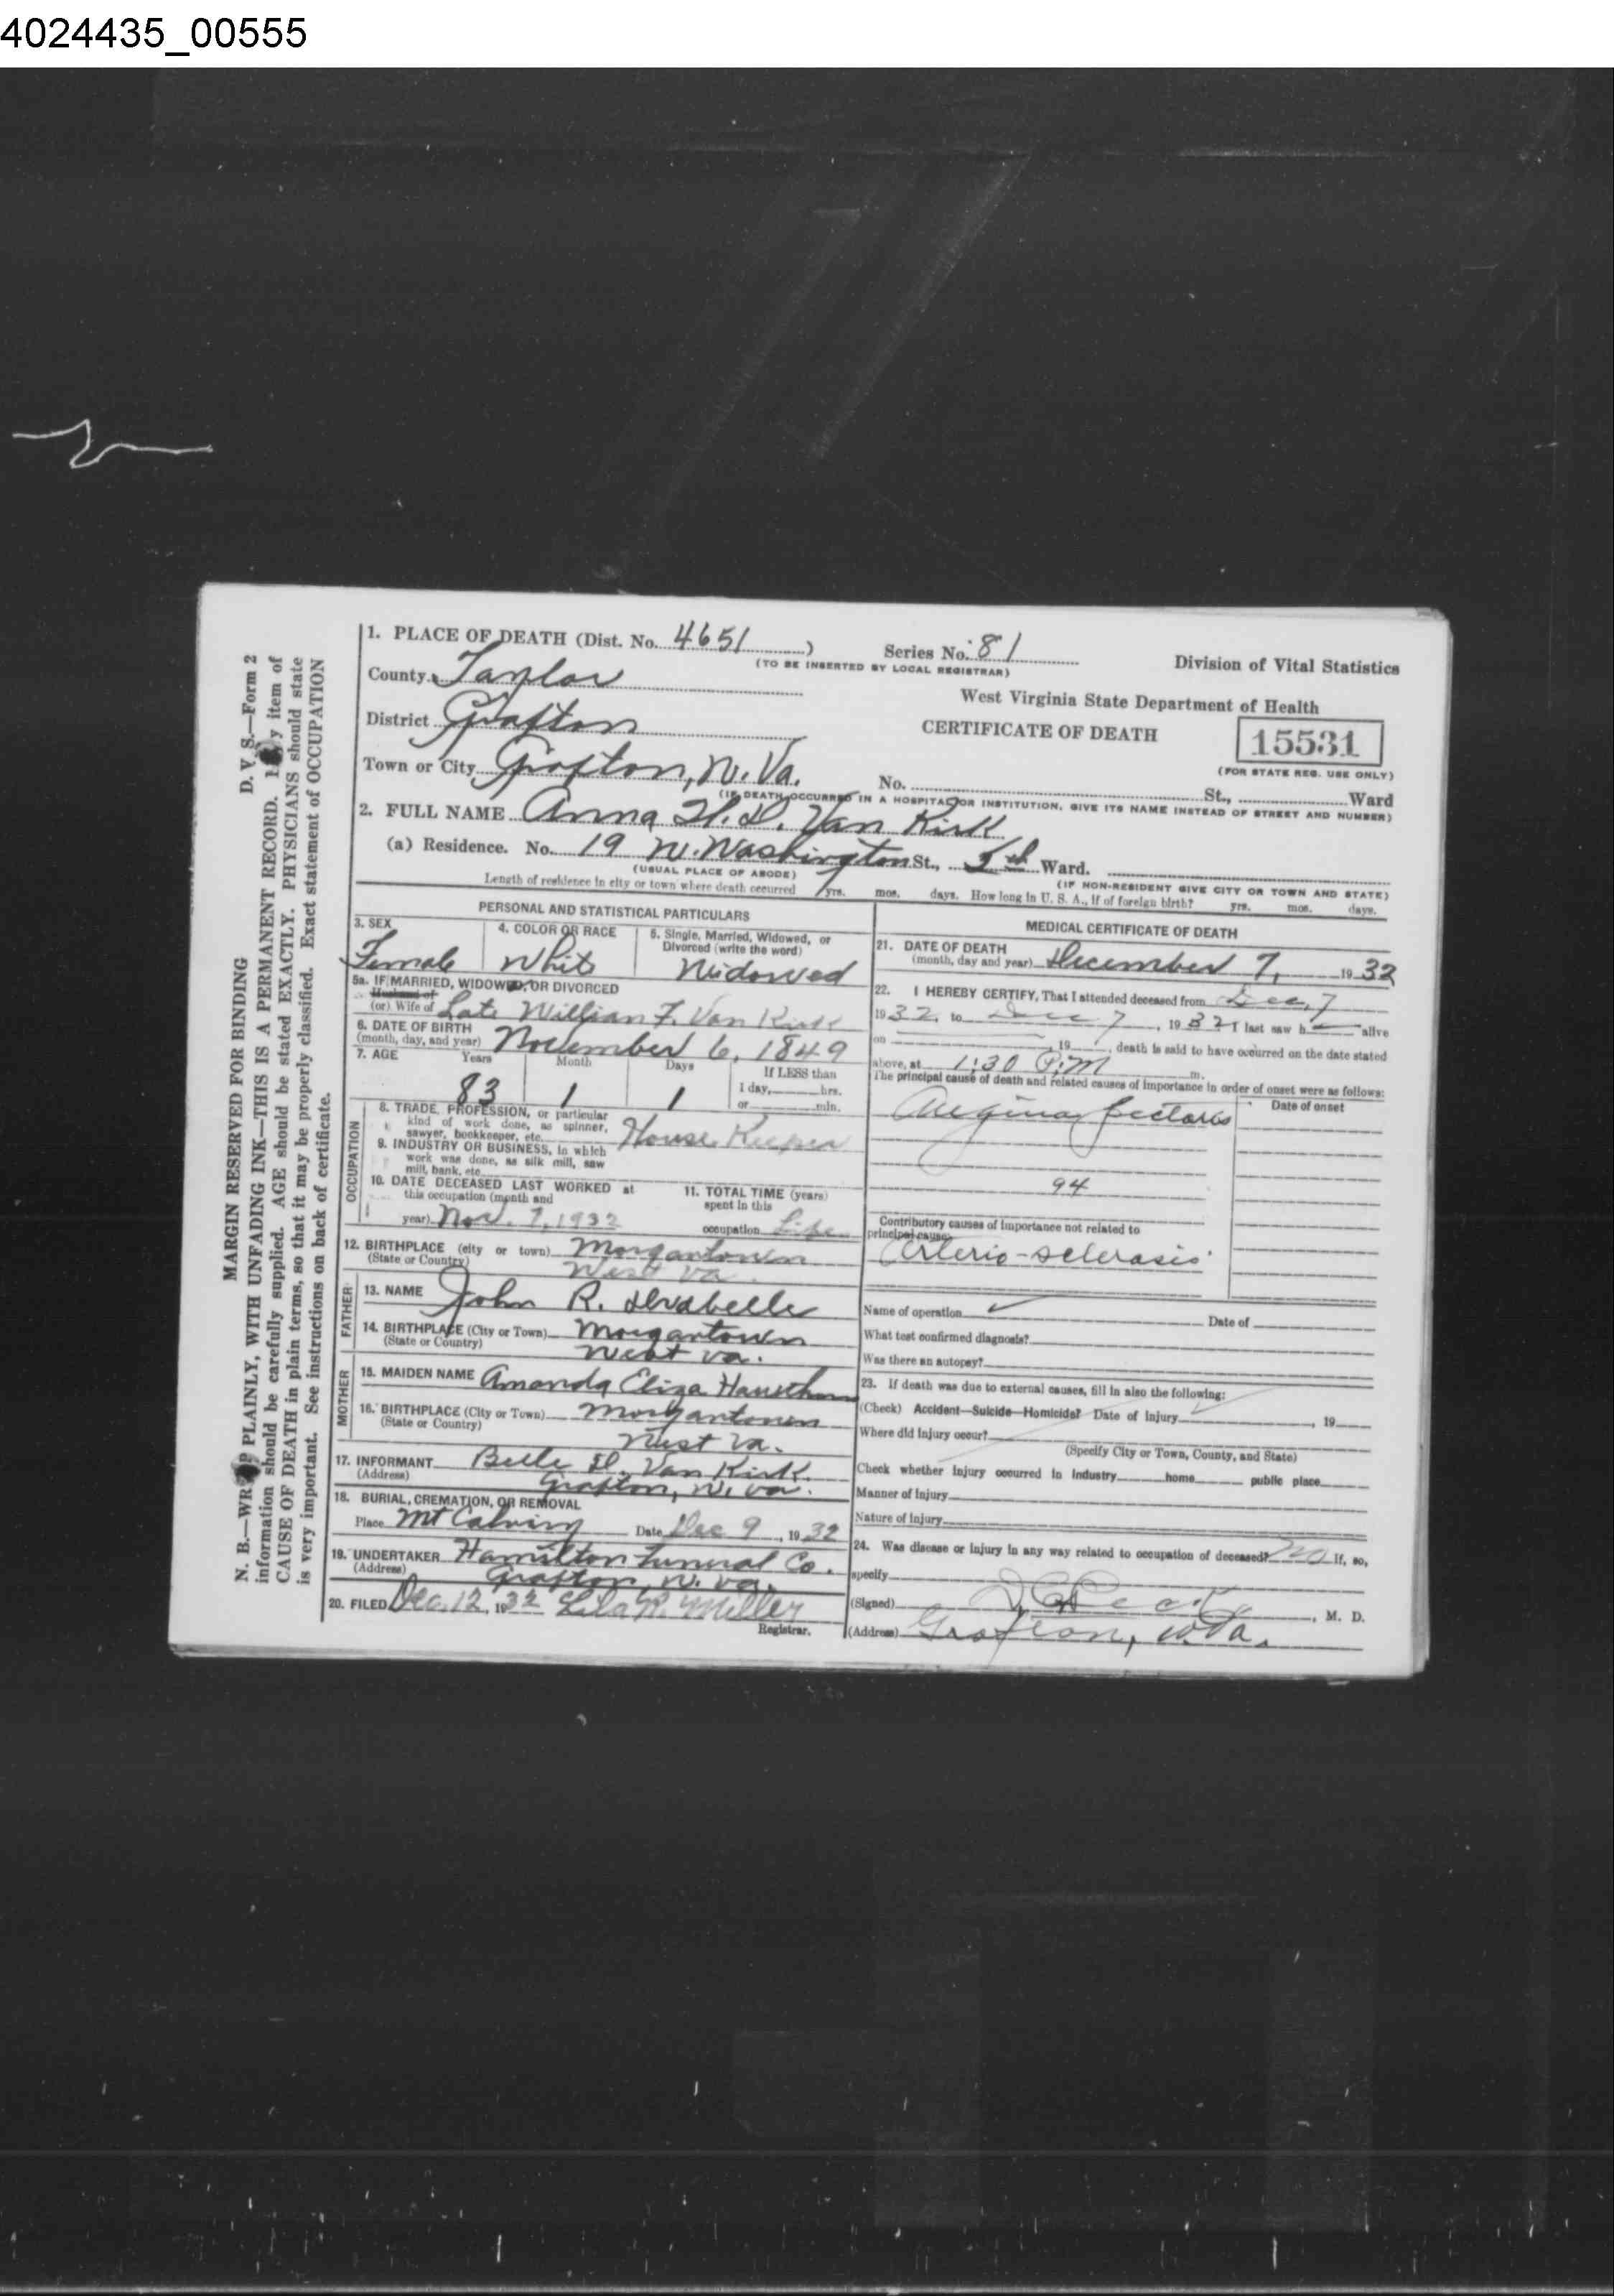 4024435_00555
MARGIN RESERVED FOR BINDING D. V. S.—Form 2
N. B.—WRITE PLAINLY, WITH UNFADING INK—THIS IS A PERMANENT RECORD. Every item of
information should be carefully supplied. AGE should be stated EXACTLY. PHYSICIANS should state
CAUSE OF DEATH in plain terms, so that it may be properly classified. Exact statement of OCCUPATION
is very important. See instructions on back of certificate.
1. PLACE OF DEATH (Dist. No. 4651) Series No. 81
(TO BE INSERTED BY LOCAL REGISTRAR)
Division of Vital Statistics
County Taylor
West Virginia State Department of Health
District Grafton
CERTIFICATE OF DEATH
15531
(FOR STATE REG. USE ONLY)
Town or City Grafton, W. Va. No. St., Ward
(IF DEATH OCCURRED IN A HOSPITAL OR INSTITUTION, GIVE ITS NAME INSTEAD OF STREET AND NUMBER)
2. FULL NAME Anna H. D. Van Kirk
(a) Residence. No. 19 W. Washington St., 5th Ward.
(USUAL PLACE OF ABODE) (IF NON-RESIDENT GIVE CITY OR TOWN AND STATE)
Length of residence in city or town where death occurred yrs. mos. days. How long in U. S. A., if of foreign birth? yrs. mos. days.
PERSONAL AND STATISTICAL PARTICULARS
3. SEX 4. COLOR OR RACE 5. Single, Married, Widowed, or
Divorced (write the word)
Female White Widowed
5a. IF MARRIED, WIDOWED, OR DIVORCED
Husband of
(or) Wife of Late William F. Van Kirk
6. DATE OF BIRTH
(month, day, and year) November 6, 1849
7. AGE Years Month Days If LESS than
83 1 1 1 day, hrs.
or min.
OCCUPATION
8. TRADE, PROFESSION, or particular
kind of work done, as spinner,
sawyer, bookkeeper, etc. House Keeper
9. INDUSTRY OR BUSINESS, in which
work was done, as silk mill, saw
mill, bank, etc.
10. DATE DECEASED LAST WORKED at
this occupation (month and
year) Nov. 7, 1932
11. TOTAL TIME (years)
spent in this
occupation Life
12. BIRTHPLACE (city or town) Morgantown
(State or Country) West Va.
FATHER
13. NAME John R.
14. BIRTHPLACE (City or Town) Morgantown
(State or Country) West Va.
MOTHER
15. MAIDEN NAME Amanda Eliza
16. BIRTHPLACE (City or Town) Morgantown
(State or Country) West Va.
17. INFORMANT Belle D. Van Kirk
(Address) Grafton, W. Va.
18. BURIAL, CREMATION, OR REMOVAL
Place Mt Calvary Date Dec 9, 1932
19. UNDERTAKER Hamilton Funeral Co.
(Address) Grafton, W. Va.
20. FILED Dec. 12, 1932 Lila R. Miller
Registrar.
MEDICAL CERTIFICATE OF DEATH
21. DATE OF DEATH
(month, day and year) December 7, 1932
22. I HEREBY CERTIFY, That I attended deceased from Dec. 7
1932, to Dec 7, 1932 I last saw h alive
on , 19 , death is said to have occurred on the date stated
above, at 1:30 P.M m.
The principal cause of death and related causes of importance in order of onset were as follows:
Date of onset
Angina pectoris
94
Contributory causes of importance not related to
principal cause:
Arterio-sclerosis
Name of operation Date of
What test confirmed diagnosis?
Was there an autopsy?
23. If death was due to external causes, fill in also the following:
(Check) Accident—Suicide—Homicide? Date of Injury , 19
Where did injury occur?
(Specify City or Town, County, and State)
Check whether injury occurred in industry home public place
Manner of Injury
Nature of Injury
24. Was disease or injury in any way related to occupation of deceased? No If, so,
specify
(Signed) Peck, M. D.
(Address) Grafton, W. Va.